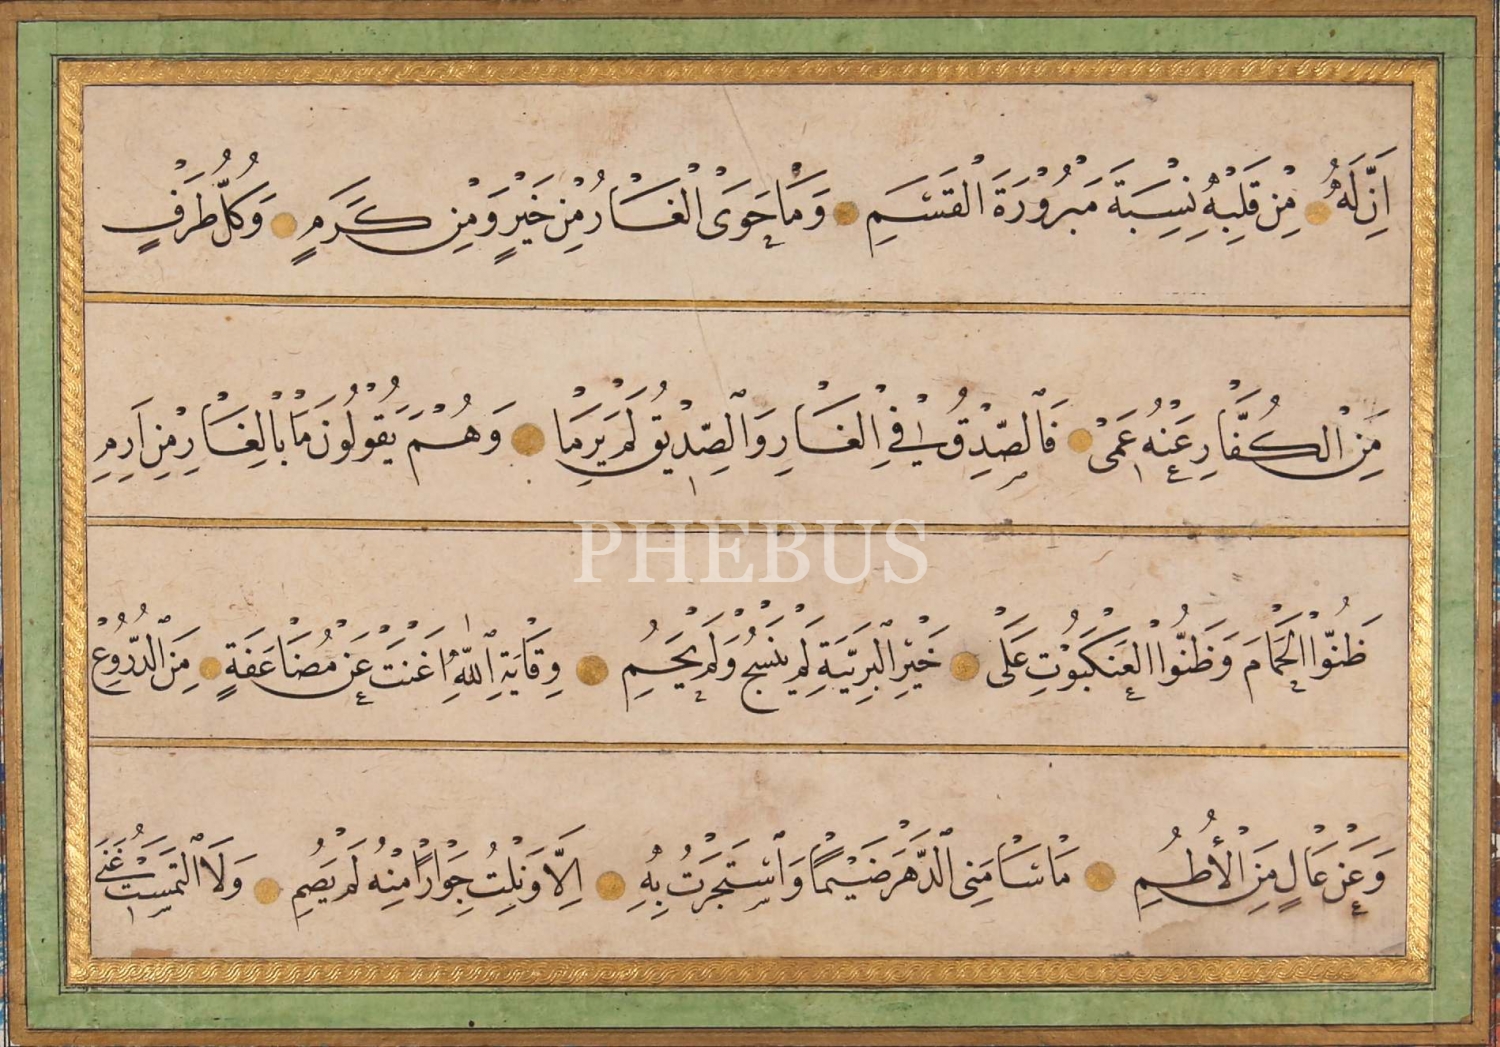 اِنَّ لَهُ مِنْ قَلْبِهِ نِسْبَةً مَبْرُورَةَ الْقَسَمِ وَمَا حَوَى الْغَارُ مِنْ خَيْرٍ وَمِنْ كَرَمٍ وَكُلُّ طَرْفٍ
مِنَ الْكُفَّارِ عَنْهُ عَمِى فَالصِّدْقُ فِي الْغَارِ وَالصِّدِيقُ لَمْ يَرِمَا وَهُمْ يَقُولُونَ مَا بِالْغَارِ مِنْ اَرِمِ
ظَنُّوا الْحَمَامَ وَظَنُّوا الْعَنْكَبُوتَ عَلَى خَيْرِ الْبَرِيَّةِ لَمْ يَنْسِجْ وَلَمْ يَحُمِ وِقَايَةُ اللّٰهِ اَغْنَتْ عَنْ مُضَاعَفَةٍ مِنَ الدُّرُوعِ
وَعَنْ عَالٍ مِنَ الْأُطُمِ مَا سَامَنِى الدَّهْرُ ضَيْمًا وَاسْتَجَرْتُ بِهِ اِلَّا وَنِلْتُ جِوَارًا مِنْهُ لَمْ يُضَمِ وَلَا الْتَمَسْتُ غِنَى
PHEBUS